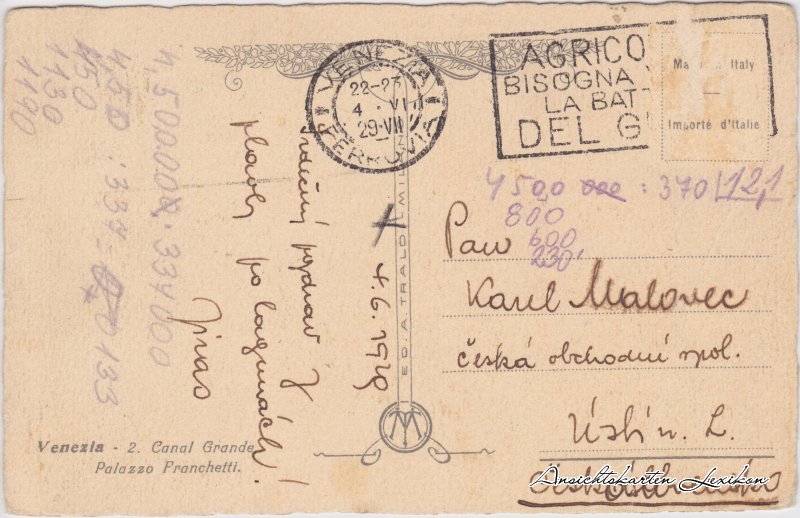 VENEZIA
22-23
4 VI
29-VII
FERROVIA
AGRICO
BISOGNA
LA BAT
DEL G
Ma Italy
Importé d'Italie
4500 000 : 370 | 12,1
800
600
230
Pan
Karel Malovec
česká obchodní spol.
Ústí n. L.
Československo
4.6.1929
Srdečný pozdrav z
plavby po lagunách!
Jiras
ED. A. TRALDI - MILANO
4500.000 : 334000
450 : 334 = 0 133
450
1130
1190
Venezia - 2. Canal Grande
Palazzo Franchetti.
Ansichtskarten Lexikon